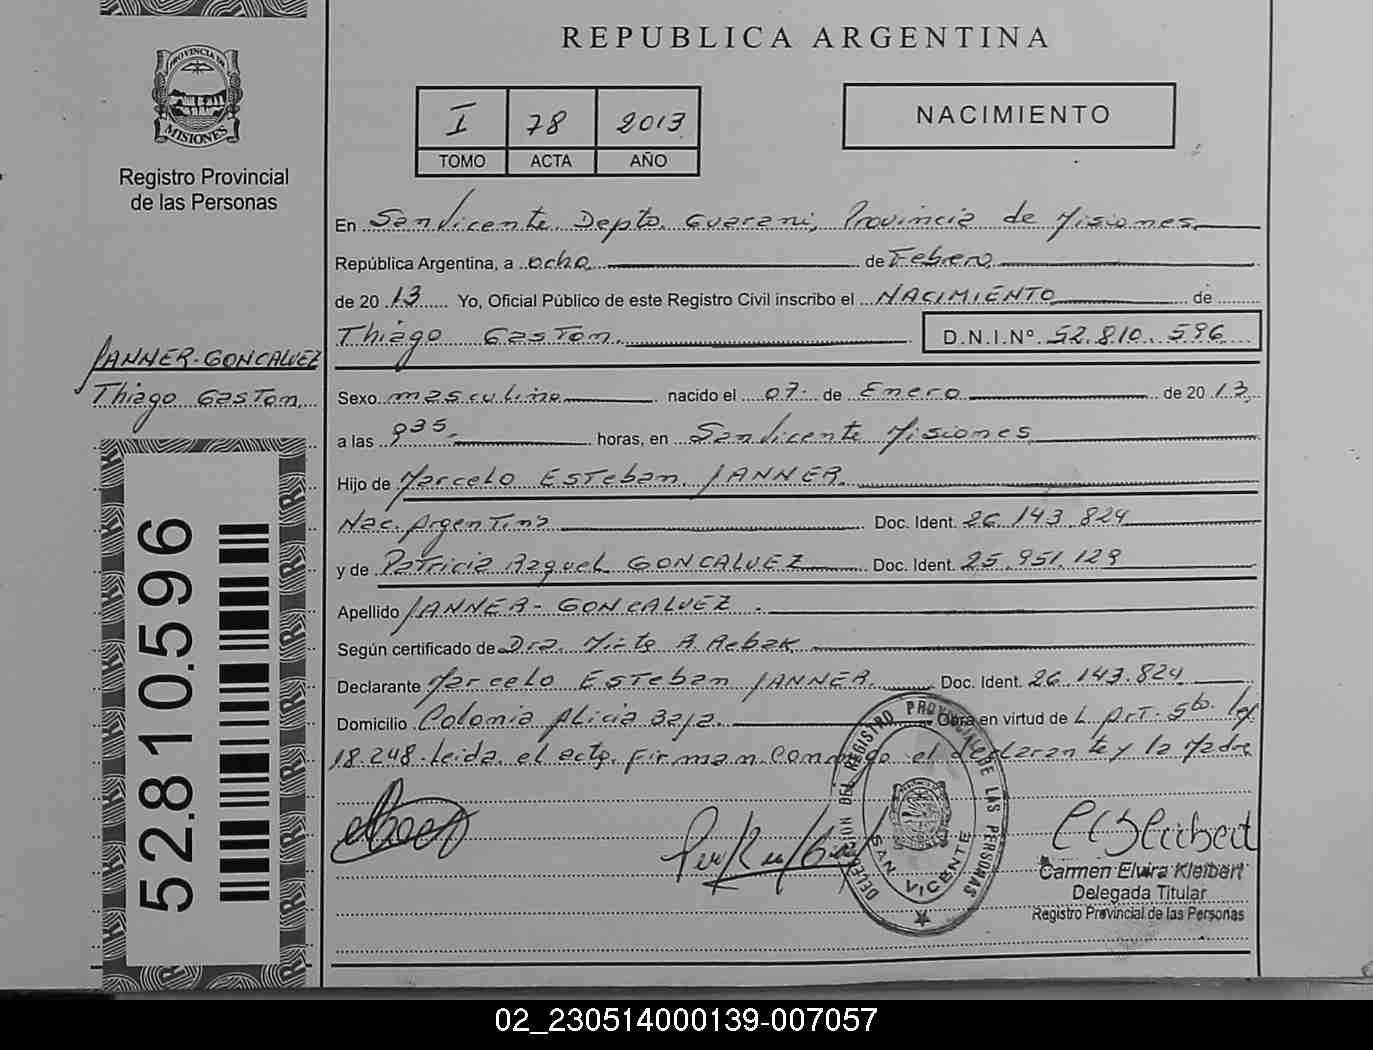 PROVINCIA DE
MISIONES
Registro Provincial
de las Personas
JANNER-GONCALVEZ
Thiago Gaston
52.810.596
REPUBLICA ARGENTINA
I 78 2013
TOMO ACTA AÑO
NACIMIENTO
En San Vicente, Depto. Guarani, Provincia de Misiones
República Argentina, a ocho de Febrero
de 2013 Yo, Oficial Público de este Registro Civil inscribo el NACIMIENTO de
Thiago Gaston D.N.I.Nº 52.810.596
Sexo masculino nacido el 07 de Enero de 2013
a las 935 horas, en San Vicente Misiones
Hijo de Marcelo Esteban JANNER
Nac. Argentina Doc. Ident. 26.143.824
y de Patricia Raquel GONCALVEZ Doc. Ident. 25.951.129
Apellido JANNER-GONCALVEZ
Según certificado de Dra. Mirta A. Rebak
Declarante Marcelo Esteban JANNER. Doc. Ident. 26.143.824
Domicilio Colonia Alicia Baja Obra en virtud de L. Art. 5to. ley
18.248. Leida el acta, firman conmigo el declarante y la Madre
DELEGACION DEL REGISTRO PROVINCIAL DE LAS PERSONAS
SAN VICENTE
Carmen Elvira Kleibert
Delegada Titular
Registro Provincial de las Personas
02_230514000139-007057